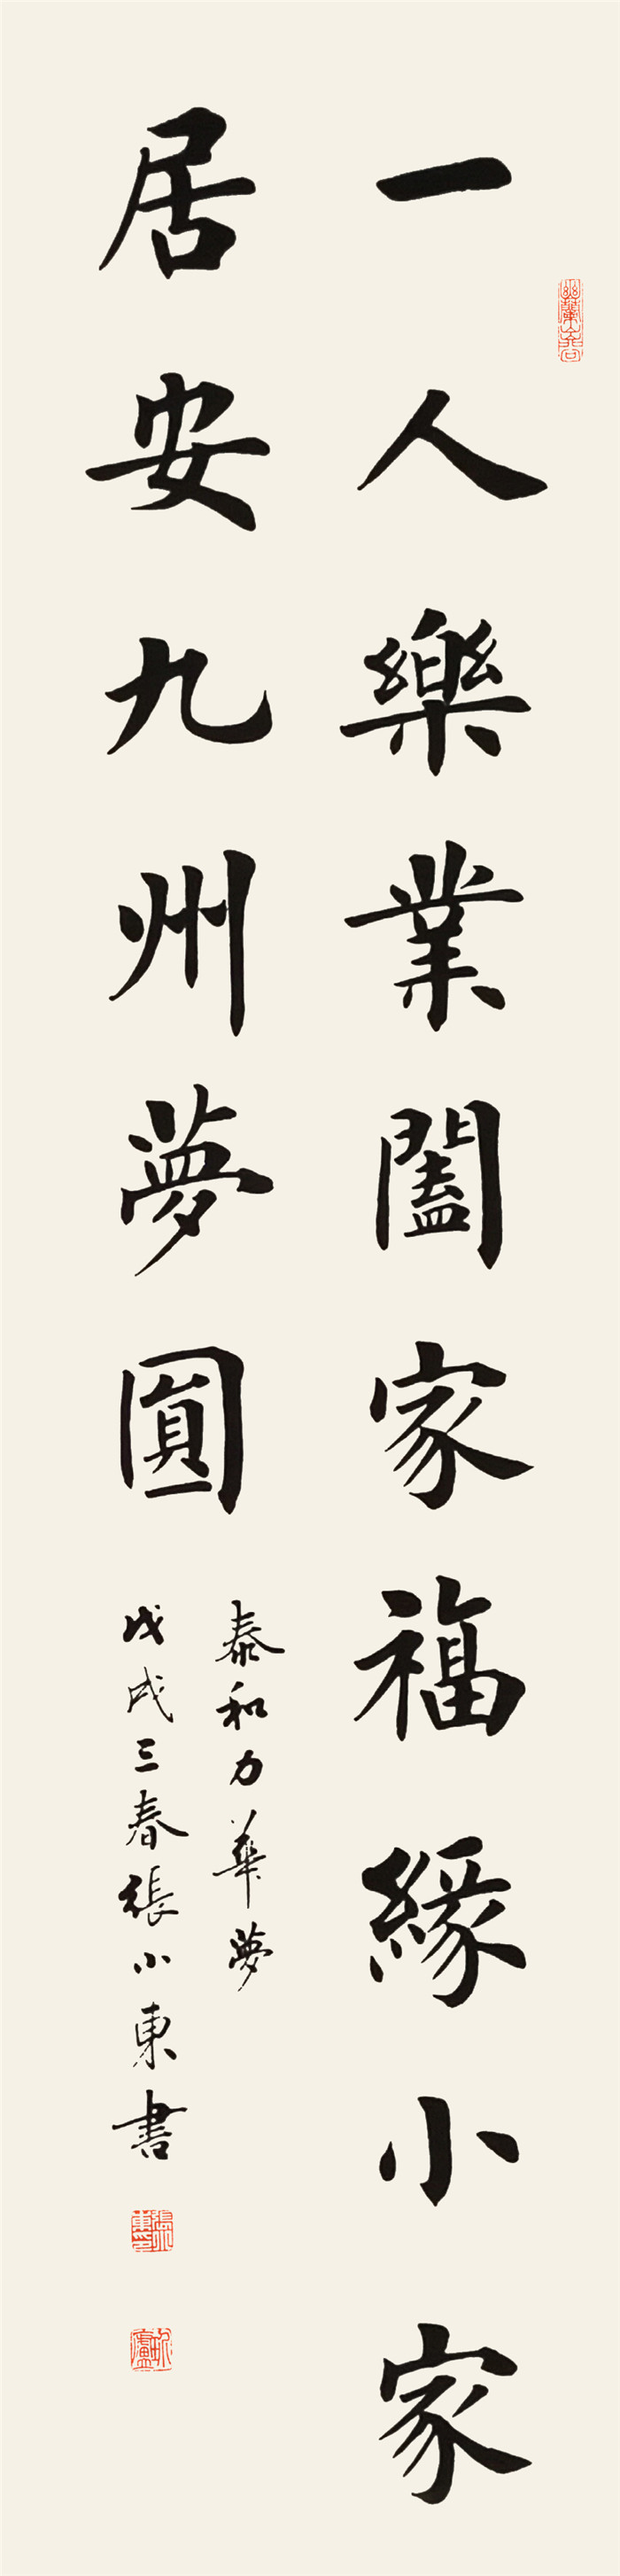 一人樂業闔家福緣小家
居安九州夢圓
泰和力華夢
戊戌三春張小東書